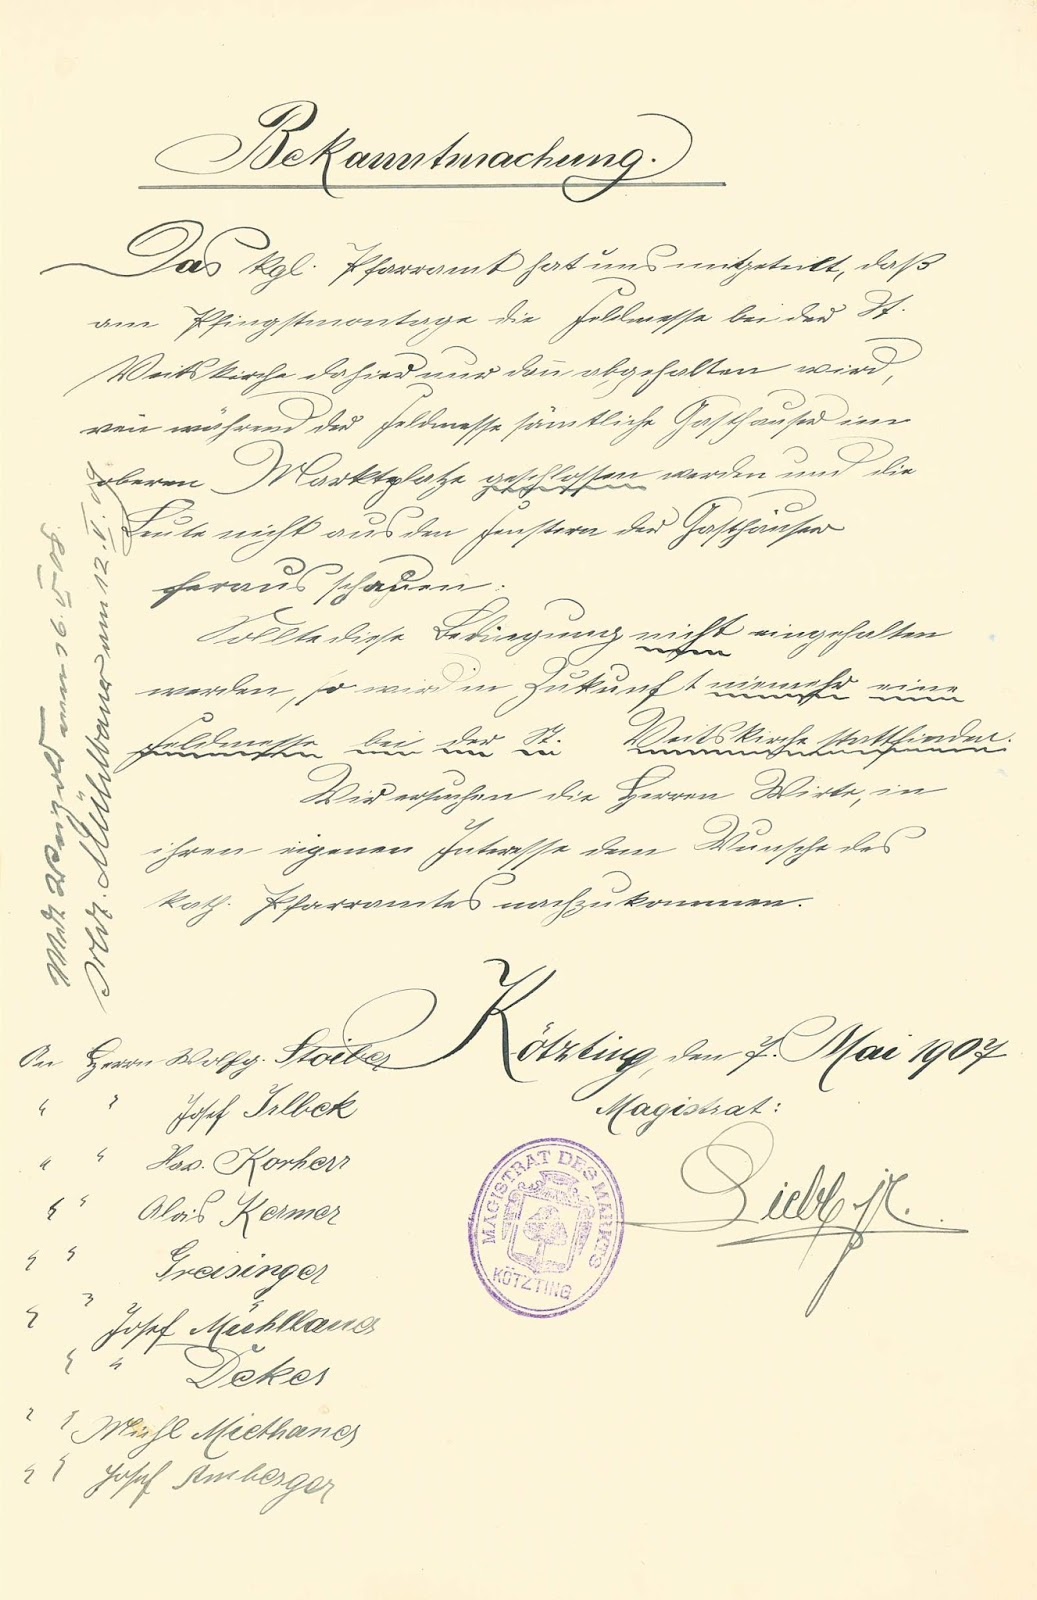 Bekanntmachung.
Das kgl. Pfarramt hat uns mitgeteilt, daß
am Pfingstmontage die Feldmesse bei der St.
Veitskirche dahier nur dan̄ abgehalten wird,
wen̄ während der Feldmesse sämtliche Gasthäuser im
oberen Marktplatze geschlossen werden und die
Leute nicht aus den Fenstern der Gasthäuser
heraus schauen.
Sollte diese Bedingung nicht eingehalten
werden, so wird in Zukunft niemehr eine
Feldmesse bei der St. Veitskirche stattfinden.
Wir ersuchen die Herren Wirte, in
ihren eigenen Interesse dem Wunsche des
kath. Pfarramtes nachzukommen.
Kötzting, den 7. Mai 1907
Magistrat:
Liebl
MAGISTRAT DES MARKTS
KÖTZTING
An Herrn Wolfg. Stoiber
" " Josef Irlbeck
" " Korherr
" " Alois Kermer
" " Greisinger
" " Josef Mühlbauer
" " Deker
" " Miethaner
" " Josef Amberger
Mühlbauer am 12. V. 09